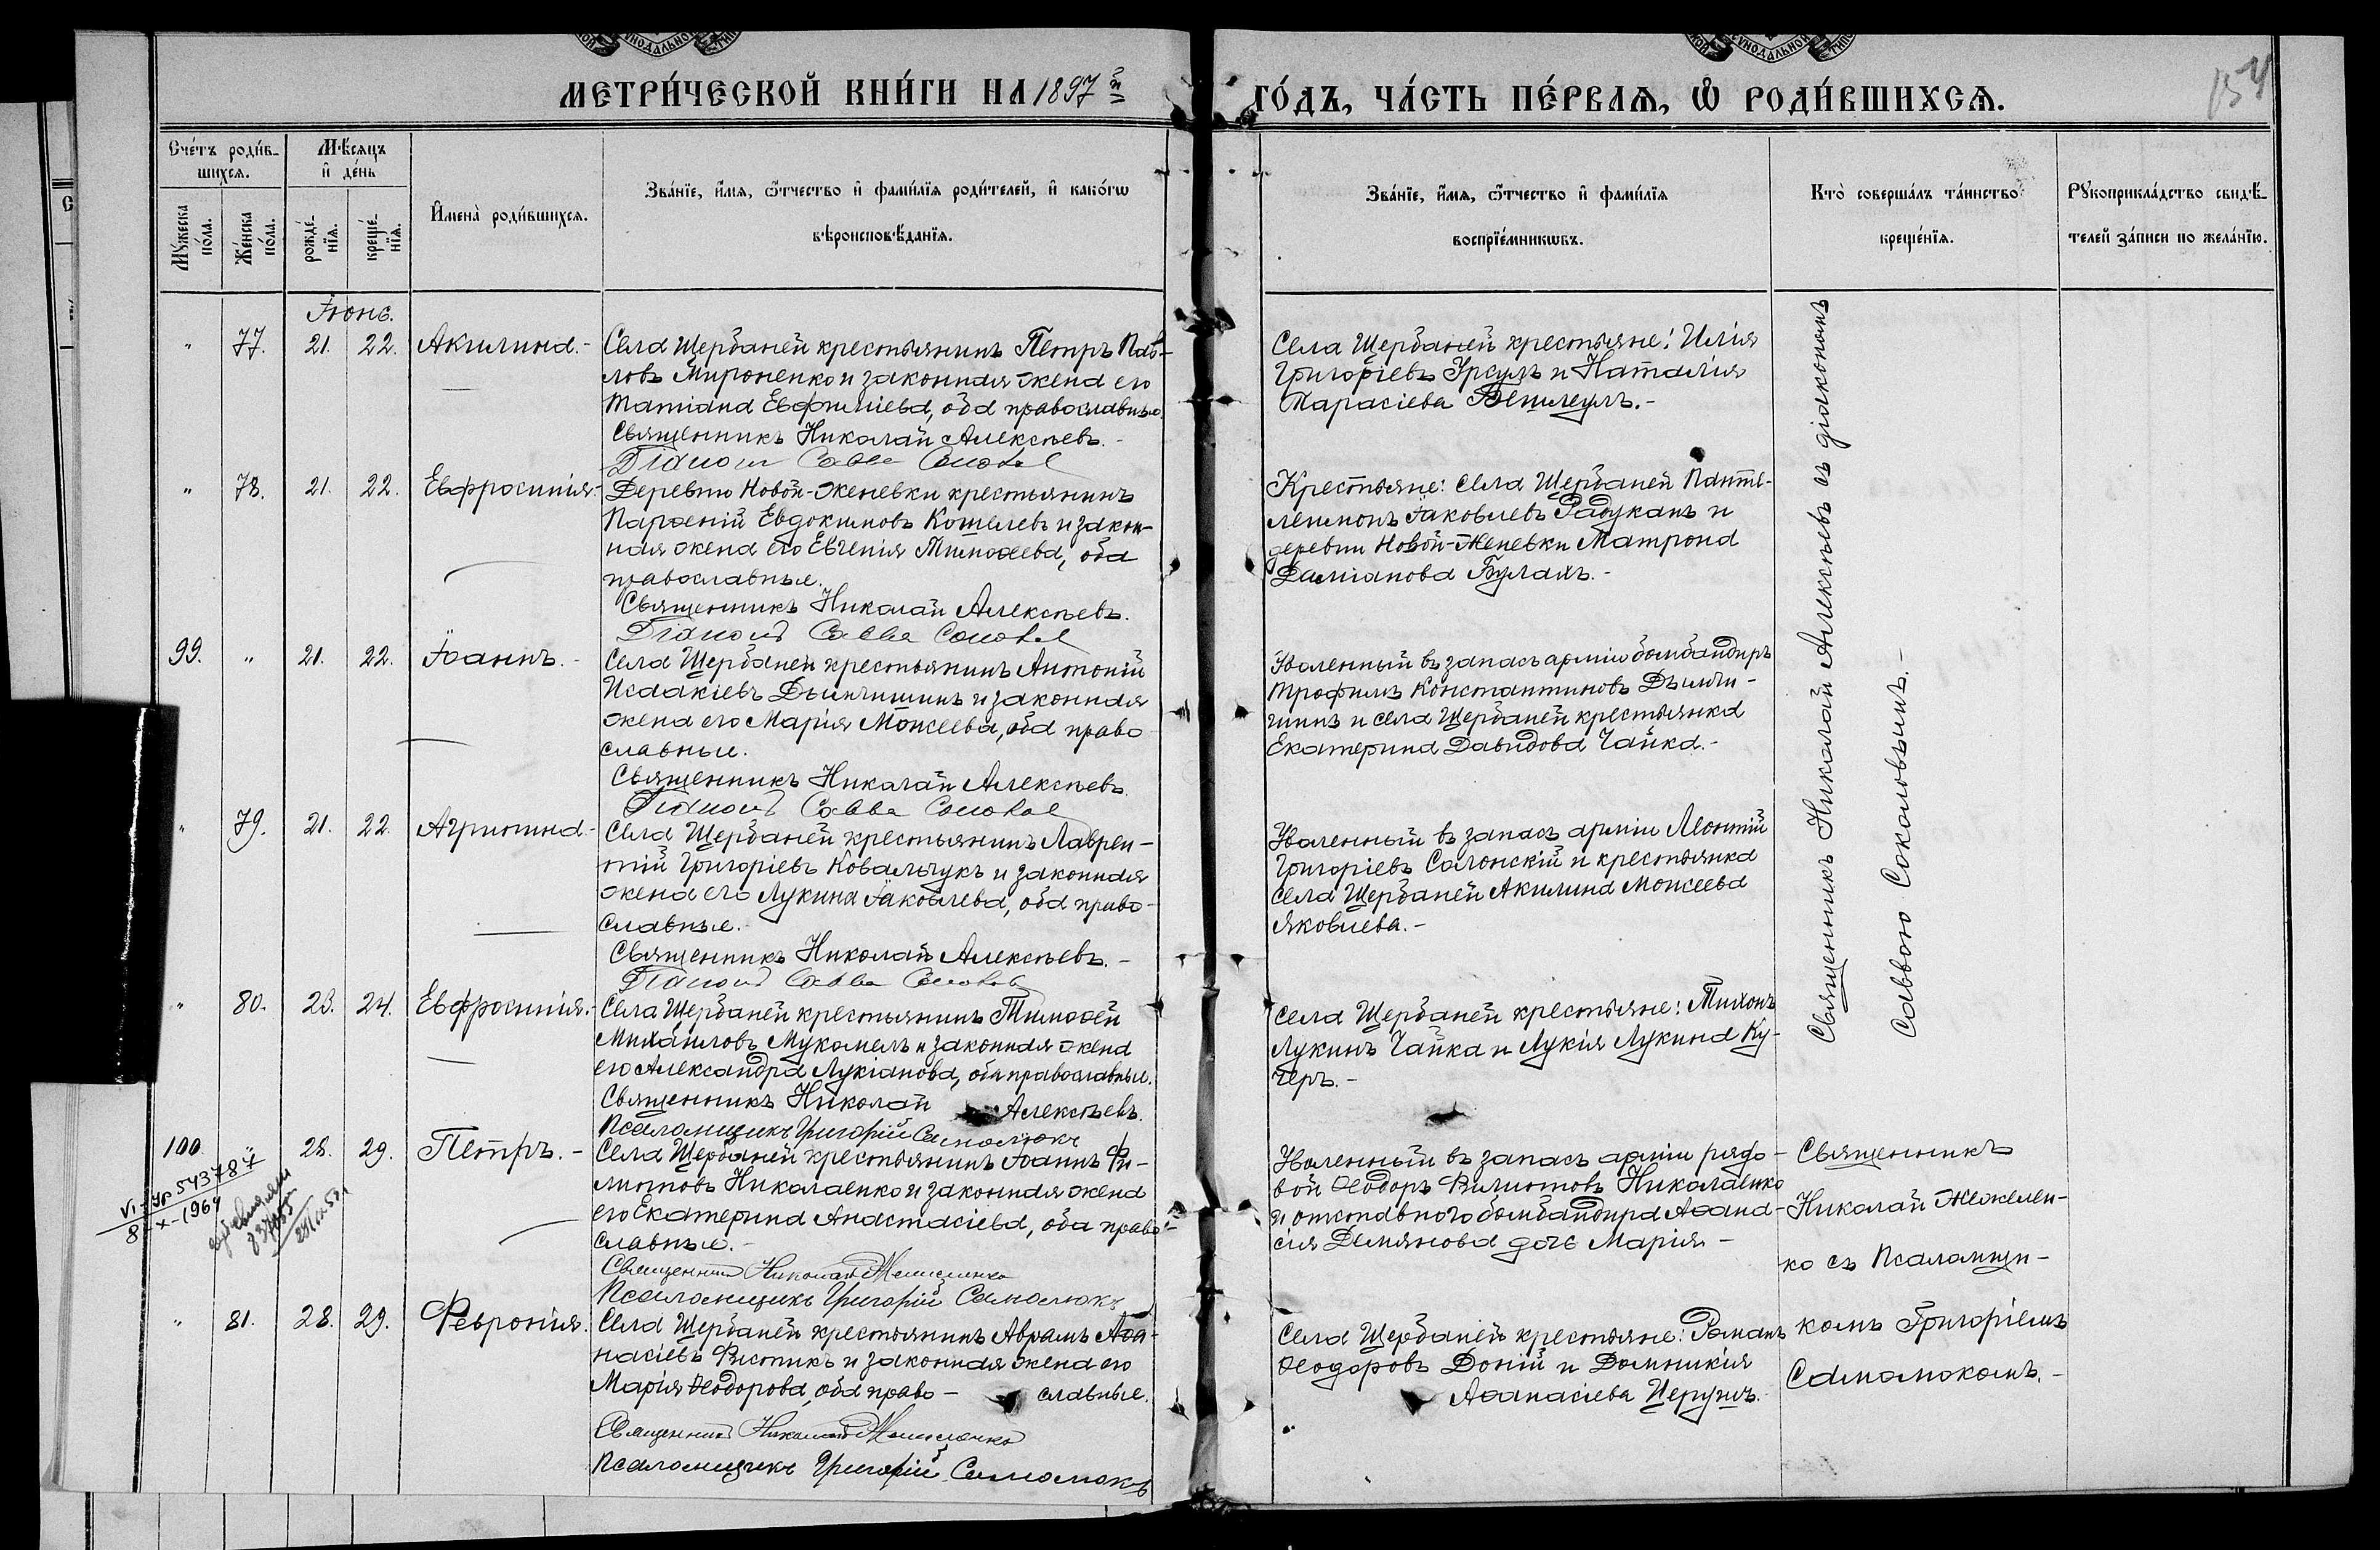 МЕТРИ́ЧЕСКОЙ КНИ́ГИ НА 1897й
ГО́ДЪ, ЧА́СТЬ ПЕ́РВАѦ, Ѡ҆ РОДИ́ВШИХСѦ.
154
Сче́тъ роди́в-
шихсѧ.
Мѣ́сѧцъ
и҆ де́нь
Мꙋ́жеска
по́ла.
Же́нска
по́ла.
рожде́-
нїѧ.
креще́-
нїѧ.
И҆мена̀ роди́вшихсѧ.
Зва́нїе, и҆́мѧ, ѻ҆́тчество и҆ фами́лїѧ роди́телей, и҆ како́гѡ
вѣроисповѣ́данїѧ.
Зва́нїе, и҆́мѧ, ѻ҆́тчество и҆ фами́лїѧ
воспрїе́мникѡвъ.
Кто̀ соверша́лъ та́инство
креще́нїѧ.
Рꙋкоприкла́дство свидѣ́-
телей за́писи по жела́нїю.
Іюнь.
" 77. 21. 22. Акилина.-
Села Щербаней крестьянинъ Петръ Пав-
ловъ Мироненко и законная жена его
Татіана Евфиміева, оба православные.
Священникъ Николай Алексѣевъ.-
Діаконъ Савва Соколов
Села Щербаней крестьяне: Илія
Григоріевъ Урсулъ и Наталія
Тарасіева Вешлеулъ.-
" 78. 21. 22. Евфросинія.-
Деревни Новой-Женевки крестьянинъ
Парѳеній Евдокимовъ Кошелевъ и закон-
ная жена его Евгенія Тимоѳеева, оба
православные.
Священникъ Николай Алексѣевъ.
Діаконъ Савва Соколов
Крестьяне: села Щербаней Панте-
леимонъ Іаковлевъ Радуканъ и
деревни Новой-Женевки Матрона
Даміанова Булахъ.-
99. " 21. 22. Іоаннъ.-
Села Щербаней крестьянинъ Антоній
Исаакіевъ Дымчишинъ и законная
жена его Марія Моисеева, оба право
славные.
Священникъ Николай Алексѣевъ
Діаконъ Савва Соколов
Уволенный въ запасъ арміи бомбандиръ
Трофимъ Константиновъ Дымчи-
шинъ и села Щербаней крестьянка
Екатерина Давидова Чайка.-
" 79. 21. 22. Агрипина.-
Села Щербаней крестьянинъ Лаврен-
тій Григоріевъ Ковальчукъ и законная
жена его Лукина Іаковлева, оба право-
славные.-
Священникъ Николай Алексѣевъ.-
Діаконъ Савва Соколов
Уволенный въ запасъ арміи Леонтій
Григоріевъ Салонскій и крестьянка
села Щербаней Акилина Моисеева
Яковлева.-
" 80. 23. 24. Евфросинія.-
Села Щербаней крестьянинъ Тимоѳей
Михаиловъ Мукомелъ и законная жена
его Александра Лукіанова, оба православные.
Священникъ Николай Алексѣевъ.
Псаломщикъ Григорій Самолюкъ
Села Щербаней крестьяне: Тихонъ
Лукинъ Чайка и Лукія Лукина Ку-
черъ.-
Священникъ Николай Алексѣевъ съ діакономъ
Саввою Соколовымъ.-
100. " 28. 29. Петръ.-
VI-УР 543787
8-X-1964
Села Щербаней крестьянинъ Іоаннъ Фи-
липповъ Николаенко и законная жена
его Екатерина Анастасіева, оба право-
славные.-
Священникъ Николай Желиленко
Псаломщикъ Григорій Самолюкъ
Уволенный въ запасъ арміи рядо-
вой Ѳеодоръ Филиповъ Николаенко
и отставного бомбандира Аѳана-
сія Демянова дочь Марія-
Священникъ
Николай Желилен-
ко съ Псаломщи-
комъ Григоріемъ
Самолюкомъ.-
" 81. 28. 29. Февронія.
Села Щербаней крестьянинъ Аврамъ Аѳа-
насіевъ Фистикъ и законная жена его
Марія Ѳеодорова, оба право- славные.
Священникъ Николай Желиленко
Псаломщикъ Григорій Самолюкъ
Села Щербаней крестьяне: Романъ
Ѳеодоровъ Доній и Домникія
Аѳанасіева Церушъ.